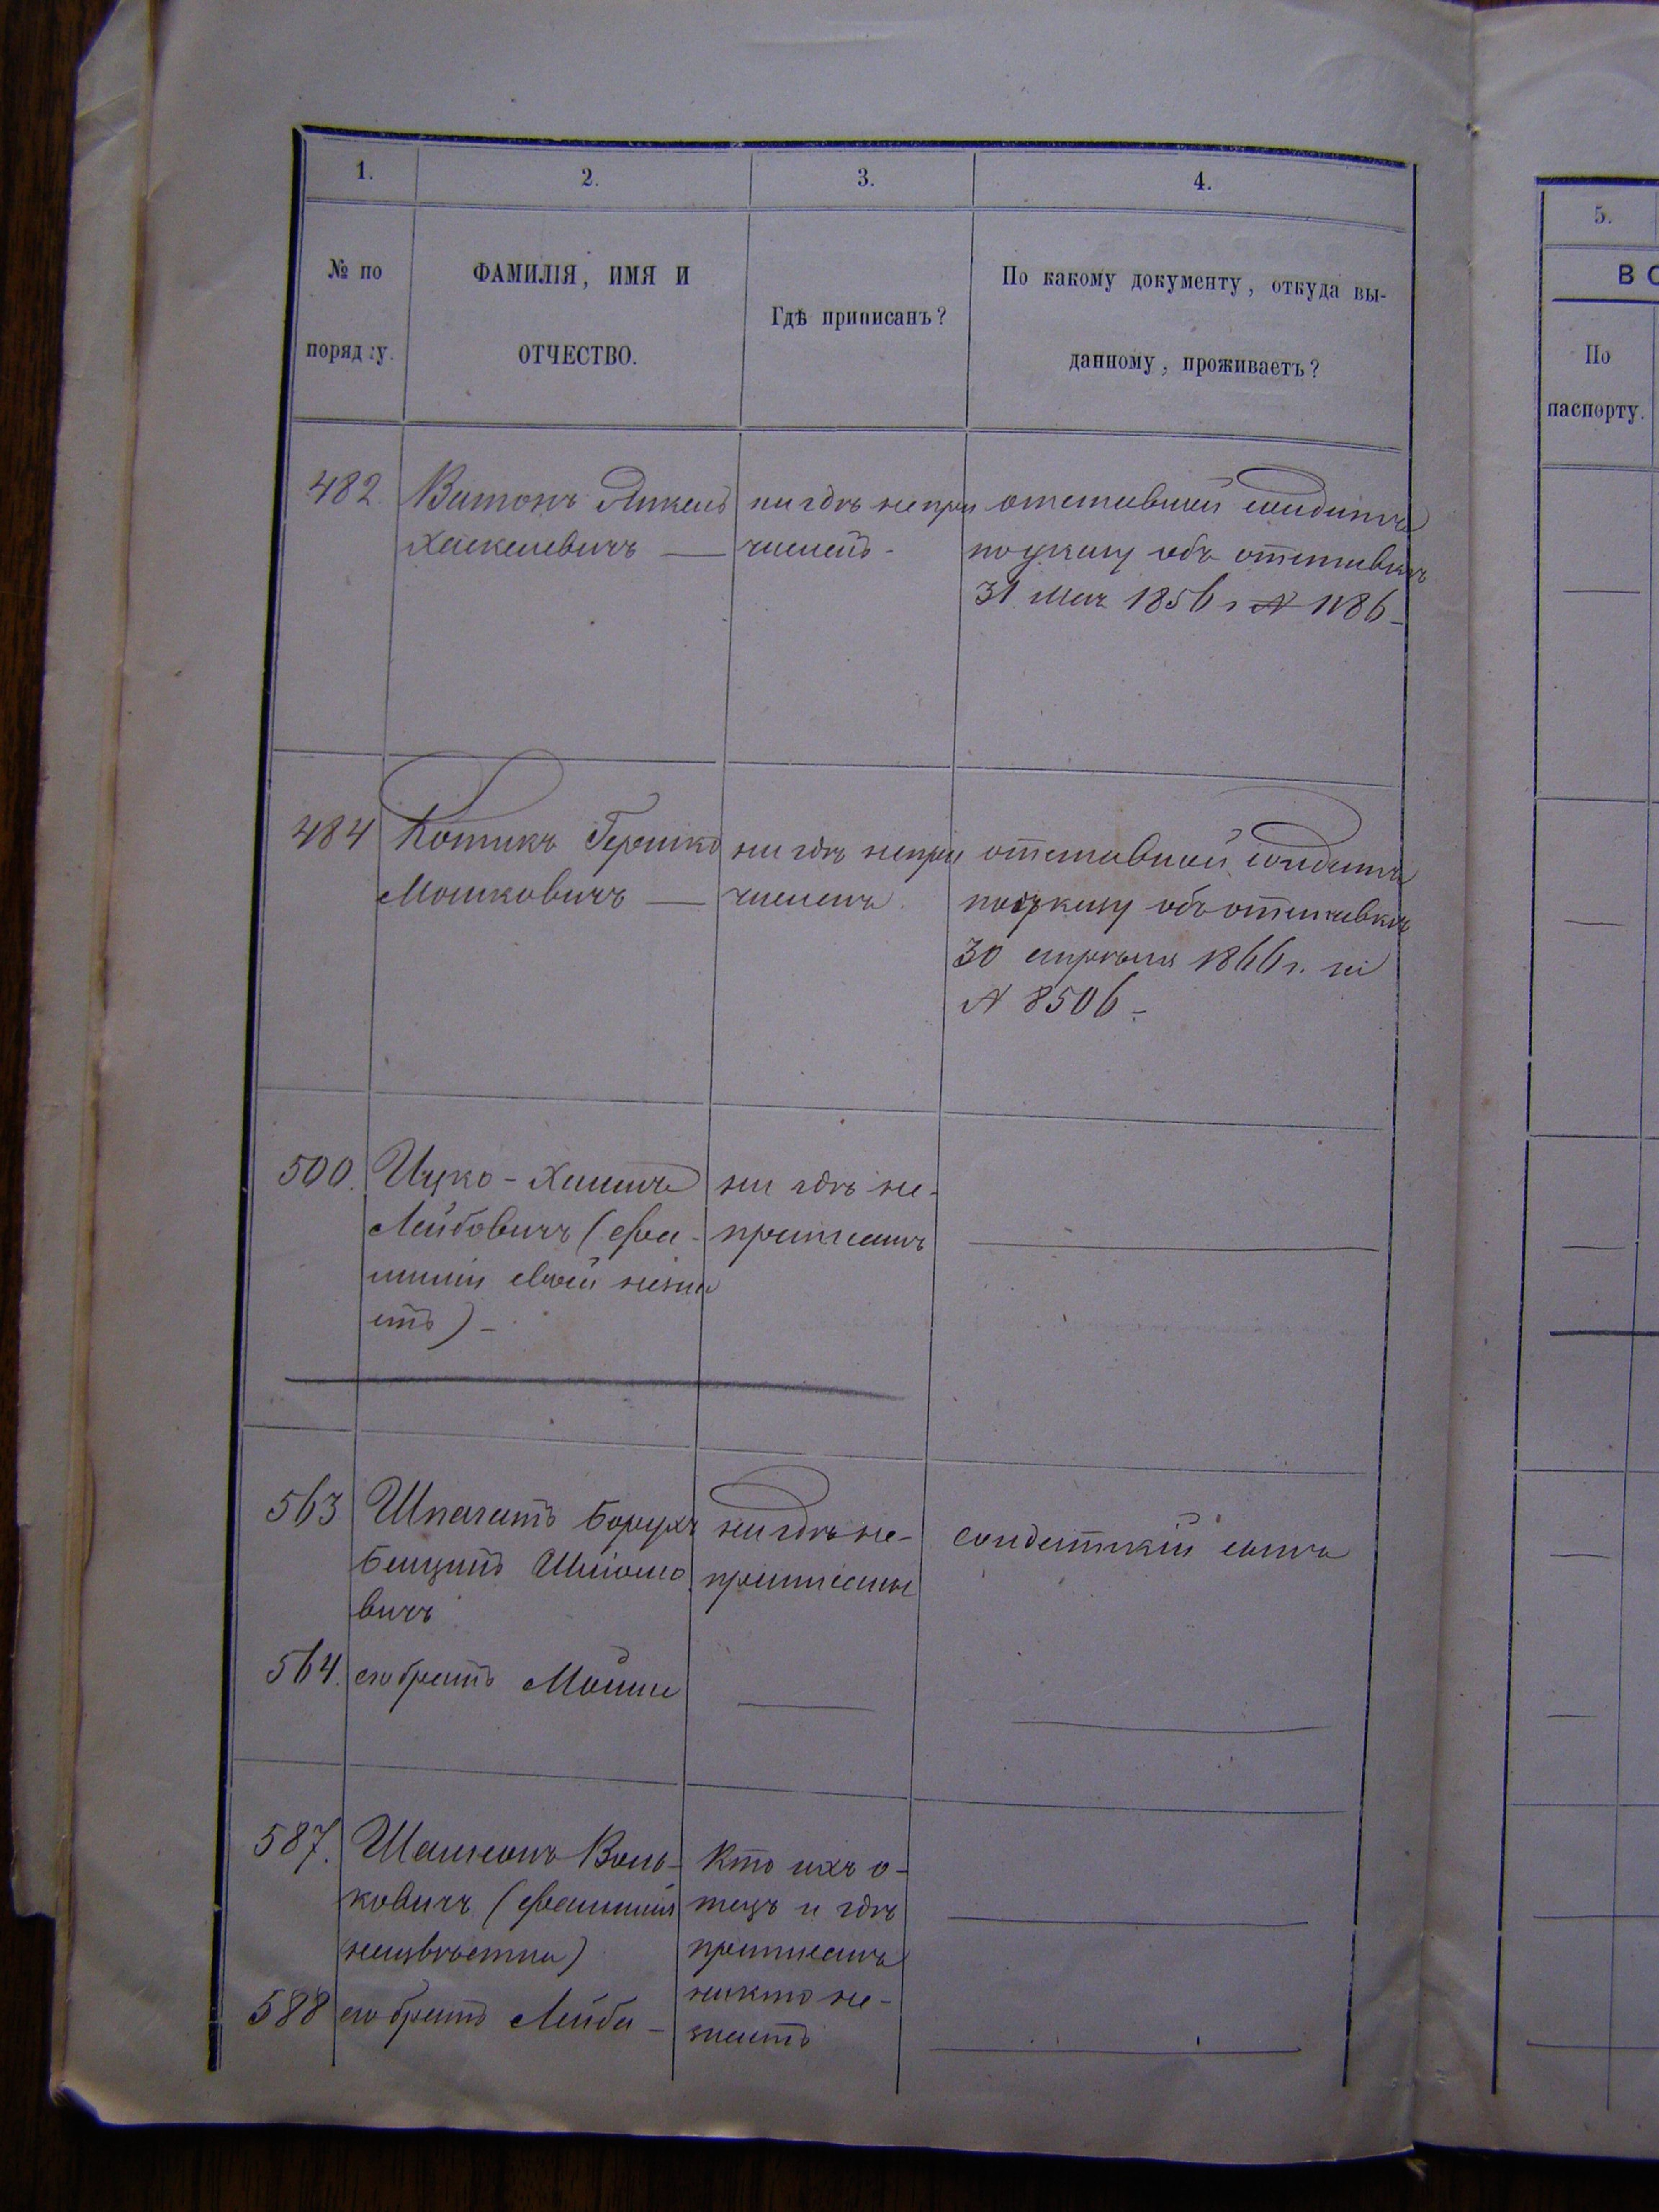 1.
2.
3.
4.
№ по
порядку.
ФАМИЛІЯ, ИМЯ И
ОТЧЕСТВО.
Гдѣ приписанъ?
По какому документу, откуда вы-
данному, проживаетъ?
5.
В С
По
паспорту.
482.
Ватонъ Янкель
Хаскелевичъ —
ни гдѣ не при
численъ -
отставной солдатъ
по указу объ отставкѣ
31 Мая 1856 г № 1186 -
484
Котикъ Гершко
Мошковичъ —
ни гдѣ не при
численъ.
отставной солдатъ
по указу объ отставкѣ
30 апрѣля 1866 г. за
№ 8506 -
500.
Ицко - Хаимъ
Лейбовичъ (фа-
миліи своей незна
етъ) -
ни гдѣ не-
приписанъ
563
Шпагатъ Борухъ
Бенціонъ Шліомо
вичъ
ни гдѣ не-
приписаны
солдатскій сынъ
564.
его братъ Мошко
587.
Шамсонъ Воль-
ковичъ (фамилія
неизвѣстна)
Кто ихъ о-
тецъ и гдѣ
приписанъ
никто не-
знаетъ
588
его братъ Лейба -